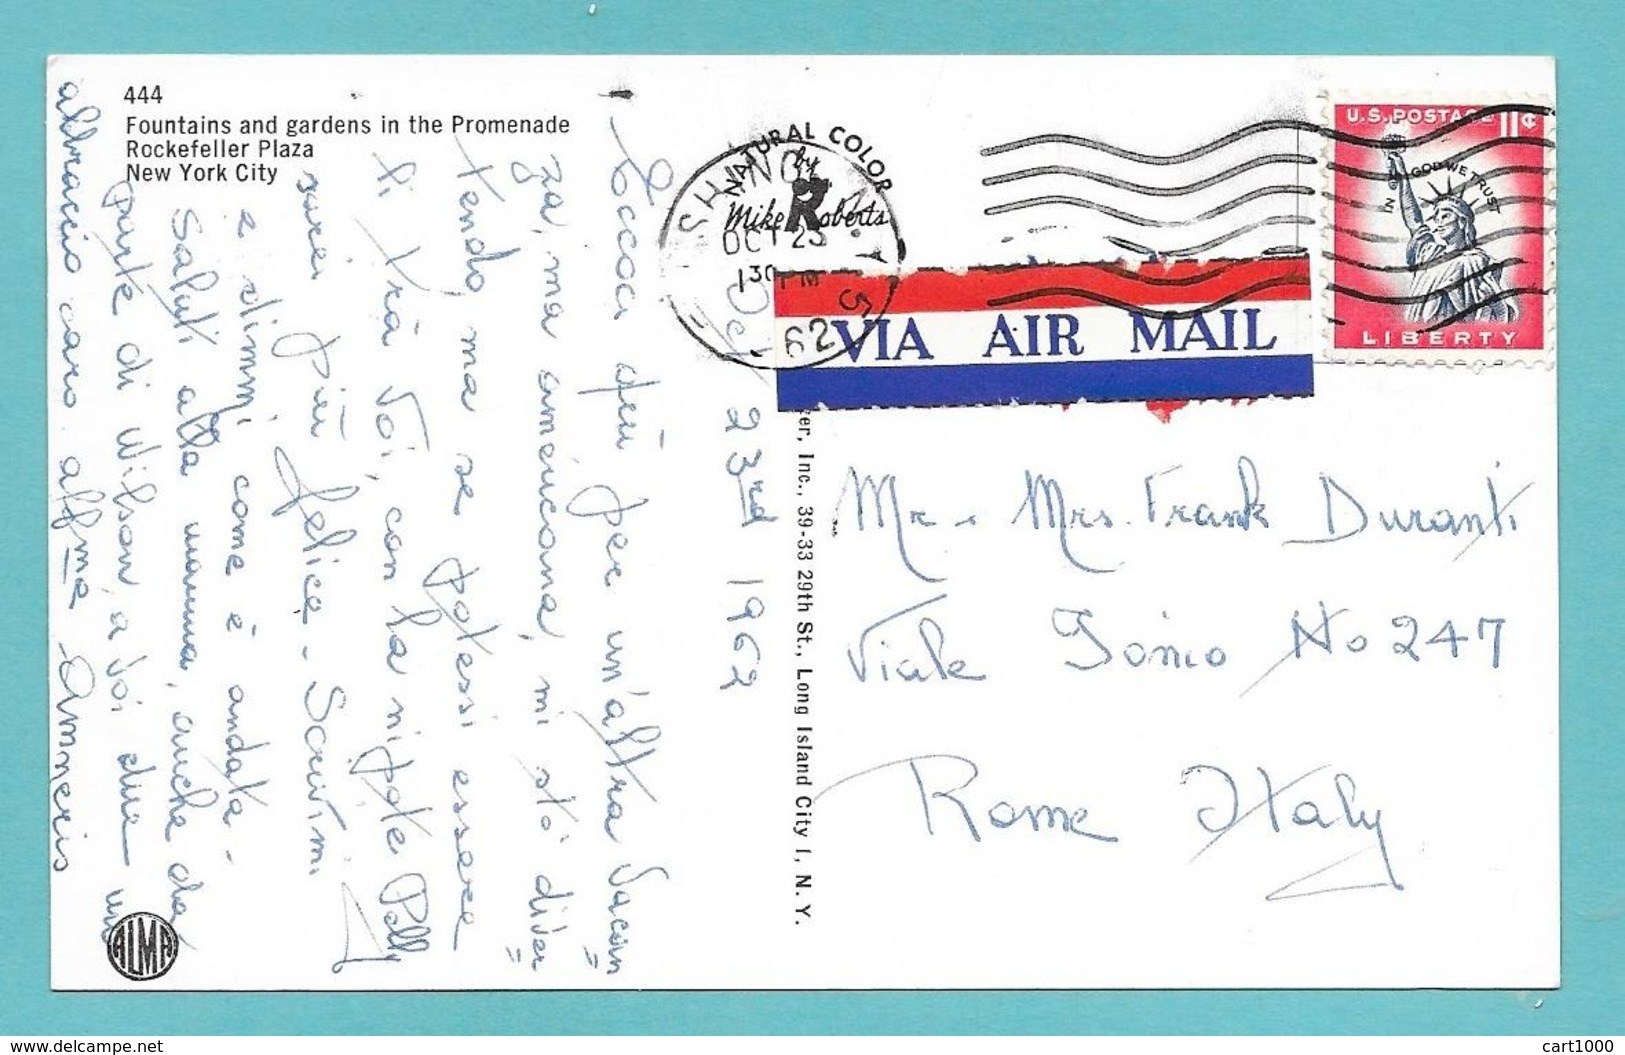 444
Fountains and gardens in the Promenade
Rockefeller Plaza
New York City
NATURAL COLOR
by
Mike Roberts
OCT 23
130 PM
62
VIA AIR MAIL
U.S. POSTAGE 11¢
IN GOD WE TRUST
LIBERTY
Oct 23rd 1962
qui per un'altra vacan=
za, ma americana, mi stò diver=
tendo, ma se potessi essere
li trà voi, con la nipote Polly
sarei più felice - Scrivimi
e dimmi come è andata -
Saluti alla mamma, anche da
parte di Wilson, a voi due un
abbraccio caro aff.ma Amneris
er, Inc., 39-33 29th St., Long Island City 1, N. Y.
Mr - Mrs. Frank Duranti
Viale Ionio No 247
Rome Italy
ALMA
www.delcampe.net
cart1000